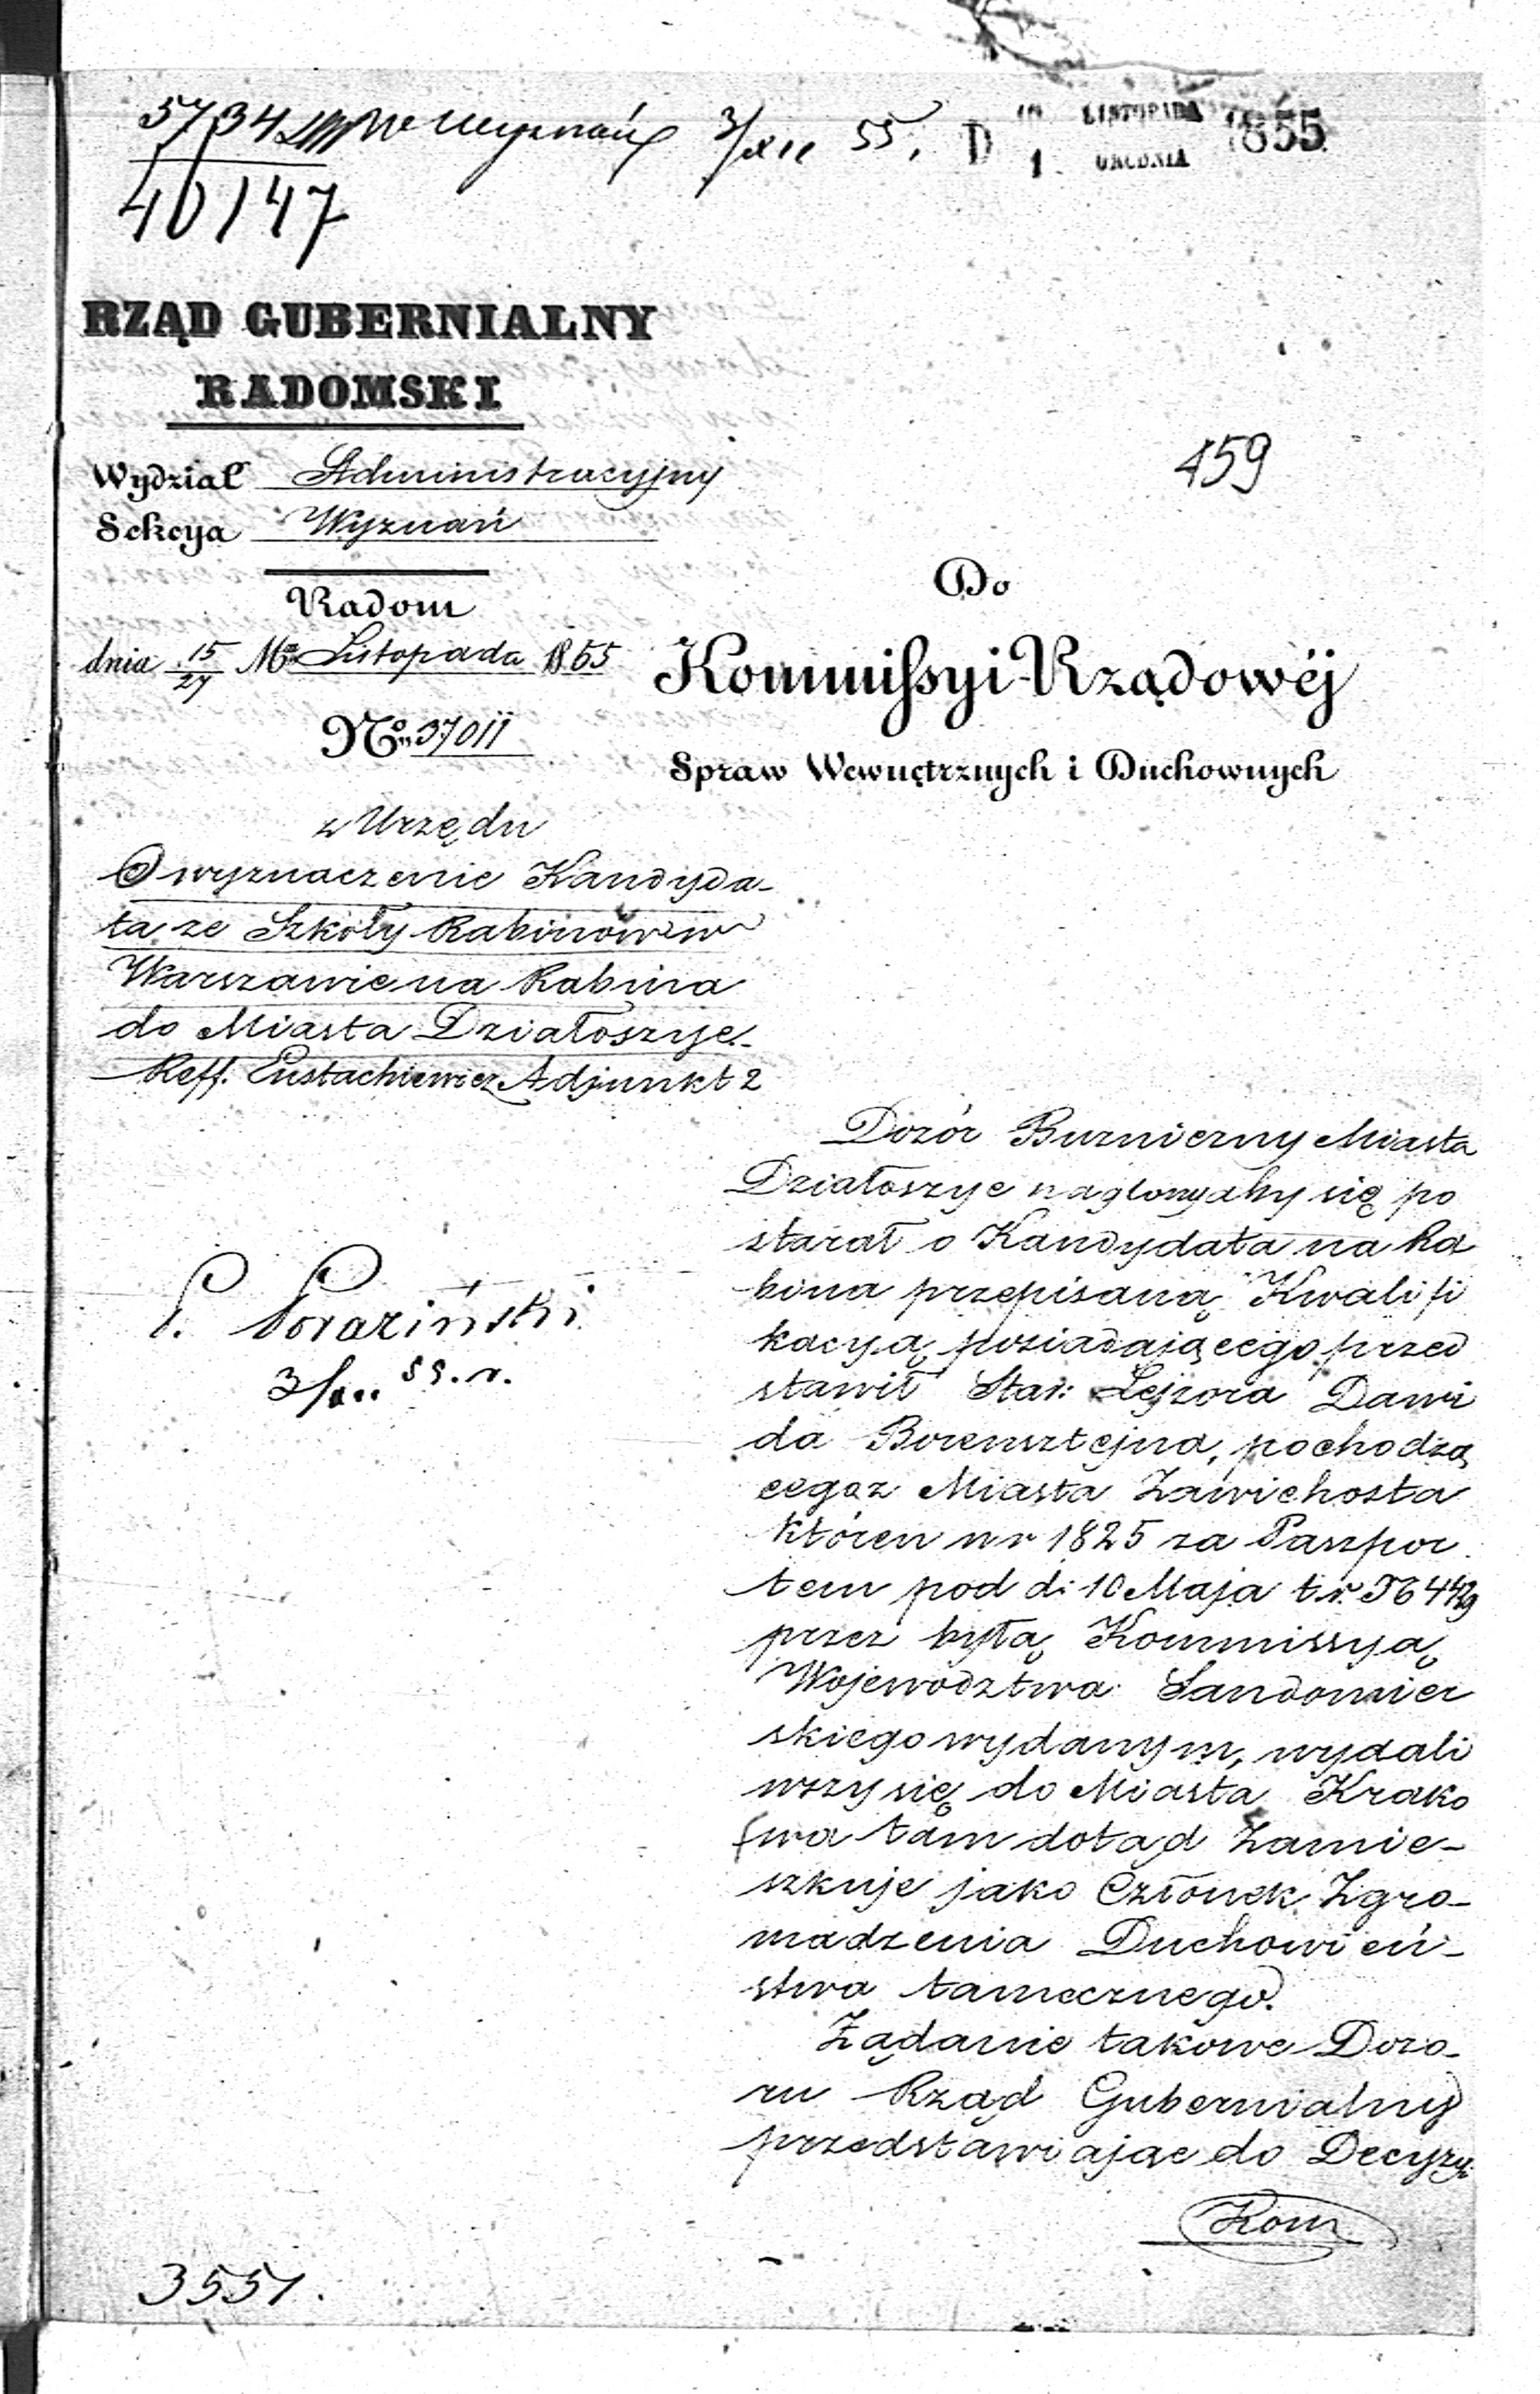 5734 Wyznań 3/XII 55. D 19 LISTOPADA 1 GRUDNIA 1855
40147
RZĄD GUBERNIALNY
RADOMSKI
459
Wydział Administracyjny
Sekcya Wyznań
Radom
dnia 15/27 Mca Listopada 1855
No 37011
Do
Kommissyi Rządowéj
Spraw Wewnętrznych i Duchownych
z Urzędu
O wyznaczenie Kandyda-
ta ze Szkoły Rabinów w
Warszawie na Rabina
do Miasta Działoszyc.
Reff. Eustachiewicz Adjunkt 2
P.
3/XII 55. r.
Dozór Bużniczny Miasta
Działoszyc naglony aby się po
starał o Kandydata na Ra
bina przepisaną Kwalifi
kacyą posiadającego przed
stawił Star: Lejzora Dawi
da Borensztejna, pochodzą
cego z Miasta Zawichosta
któren w r 1825 za Paszpor
tem pod d: 10 Maja t.r.
przez byłą Kommissyą
Województwa Sandomier
skiego wydanym, wydali
wszy się do Miasta Krako
wa tam dotąd zamie-
szkuje jako Członek Zgro-
madzenia Duchowień-
stwa tamecznego.
Żądanie takowe Dozo-
ru Rząd Gubernialny
przedstawiając do Decyzyi
Kom
3551.